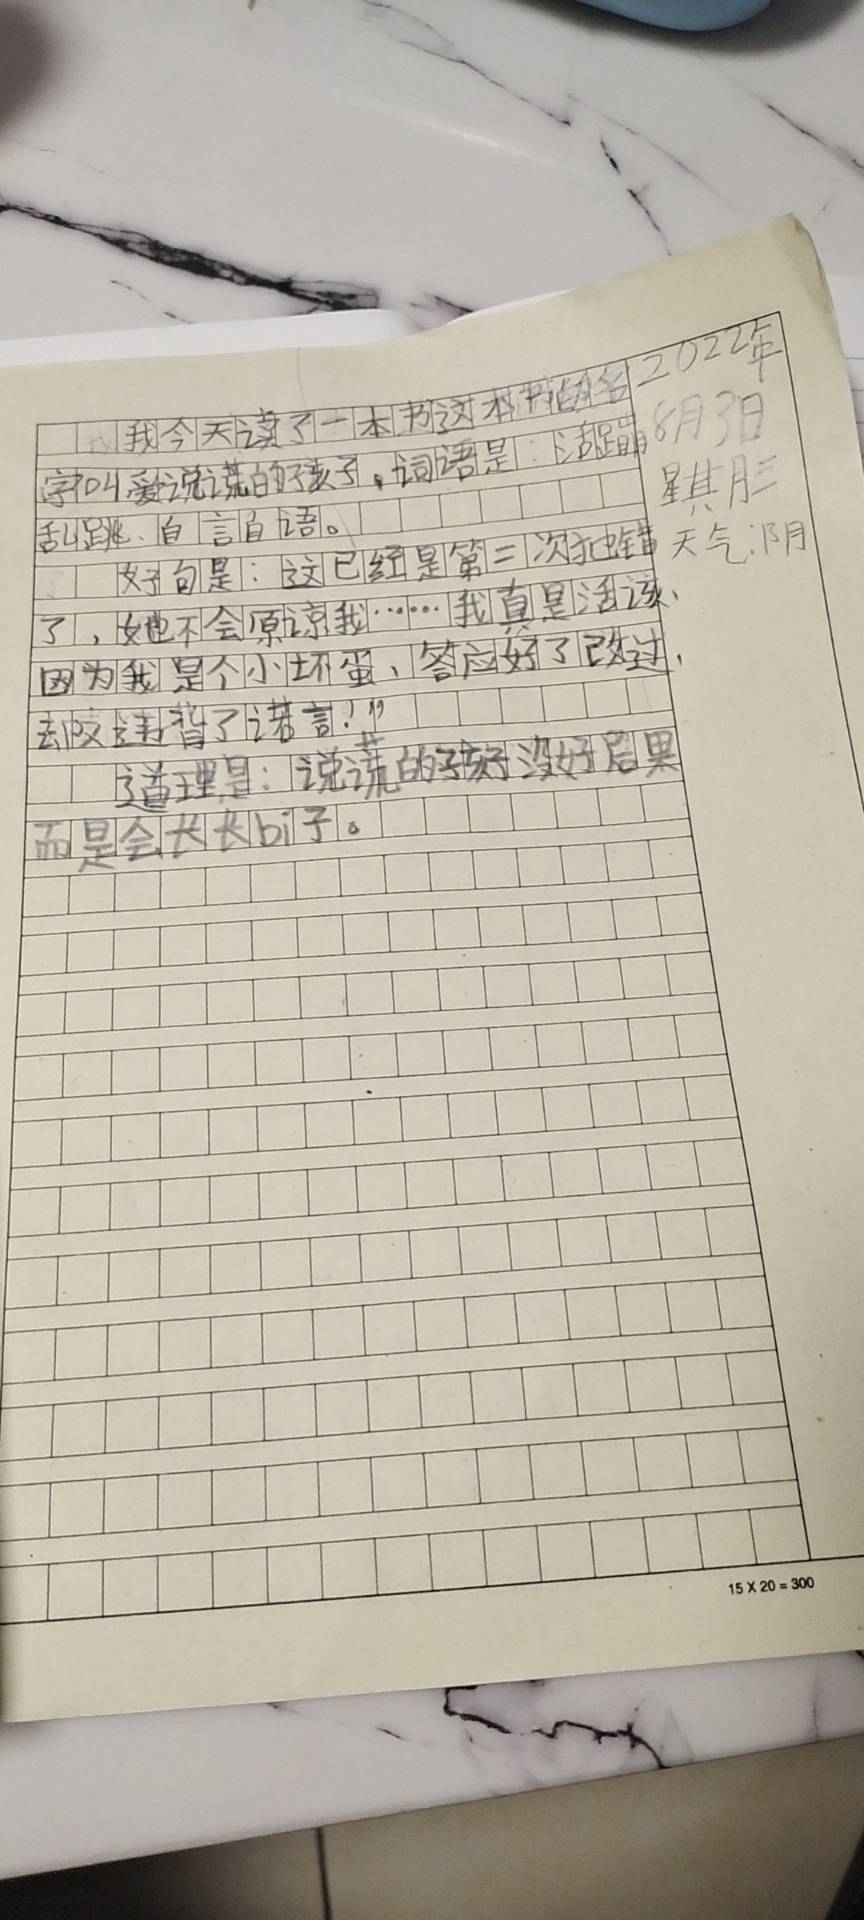 我今天读了一本书这本书的名
字叫爱说谎的孩子。词语是：活蹦
乱跳、自言自语。
好句是：这已经是第二次犯错
了，她不会原谅我……我真是活该、
因为我是个小坏蛋、答应好了改过，
却又违背了诺言！”
道理是：说谎的孩子没好后果
而是会长长bi子。
2022年
8月3日
星其月三
天气：阴
15 X 20 = 300